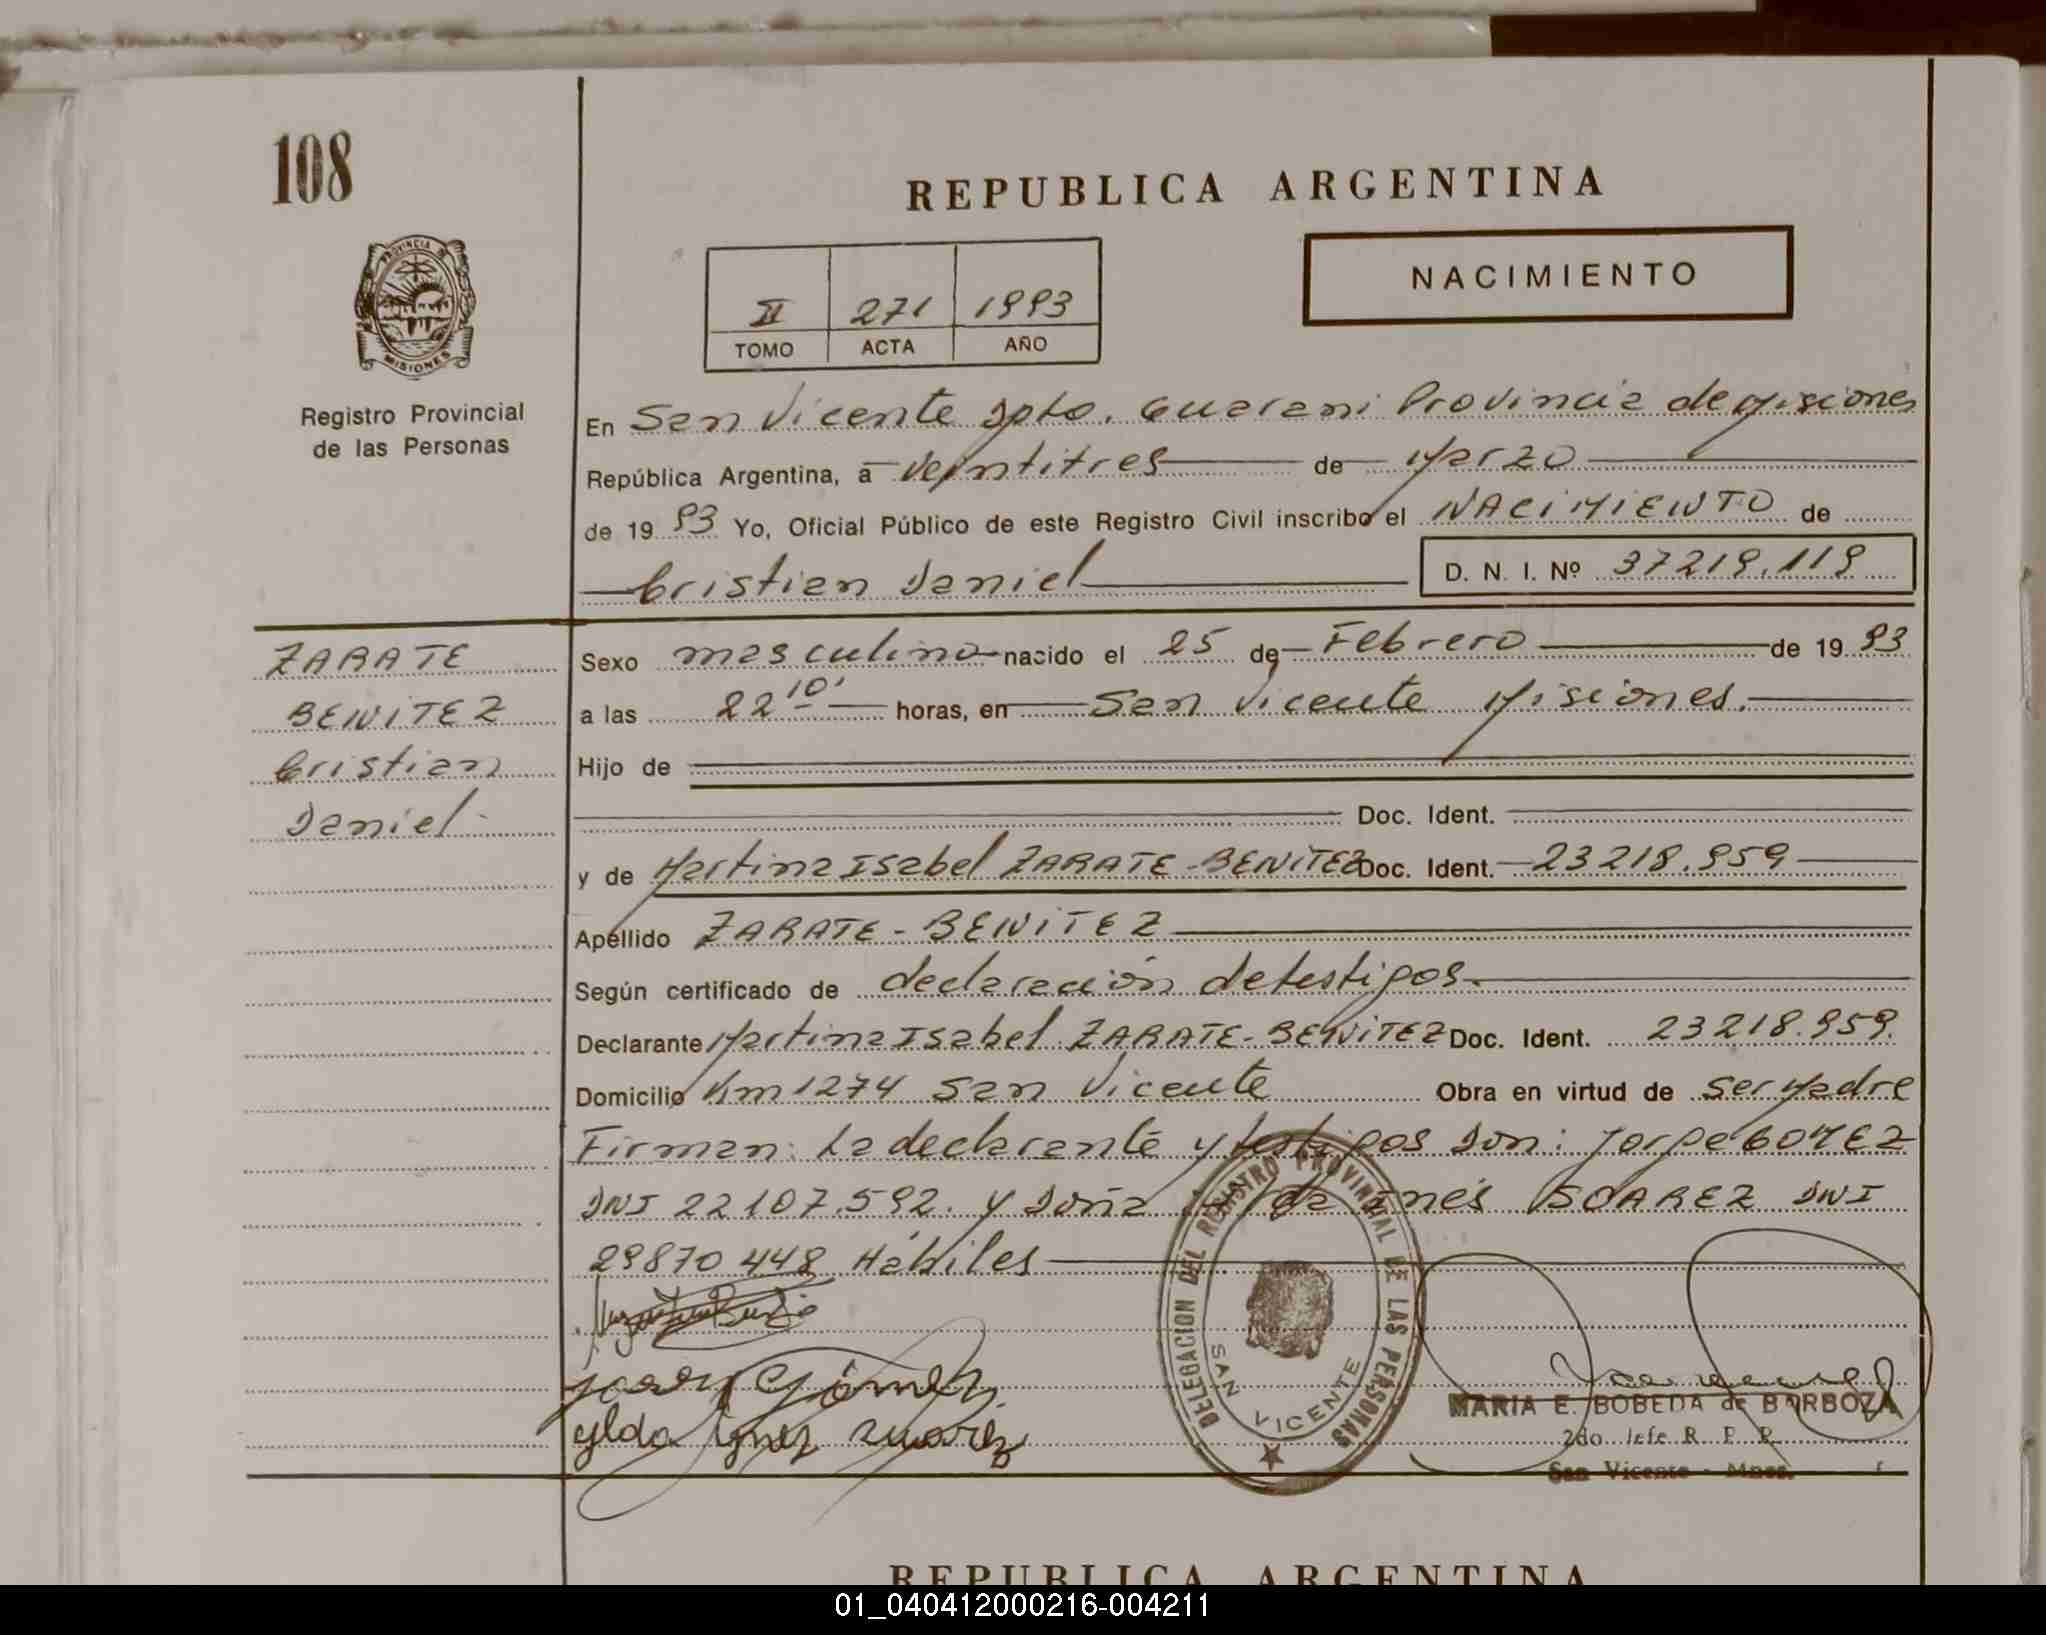 108
REPUBLICA ARGENTINA
NACIMIENTO
II 271 1993
TOMO ACTA AÑO
PROVINCIA DE
MISIONES
Registro Provincial
de las Personas
En San Vicente Dpto. Guarani Provincia de Misiones
República Argentina, a veintitres de Marzo
de 1993 Yo, Oficial Público de este Registro Civil inscribo el NACIMIENTO de
Cristian Daniel D. N. I. Nº 37219.119
ZARATE
BENITEZ
Cristian
Daniel.
Sexo masculino nacido el 25 de Febrero de 1993
a las 22 10' horas, en San Vicente Misiones.
Hijo de
Doc. Ident.
y de Martina Isabel ZARATE - BENITEZ Doc. Ident. 23218.959
Apellido ZARATE - BENITEZ
Según certificado de declaración de testigos.
Declarante Martina Isabel ZARATE - BENITEZ Doc. Ident. 23218.959.
Domicilio Km 1274 San Vicente Obra en virtud de ser Madre
Firman: La declarante y testigos Don: Jorge GOMEZ
DNI 22107.592. y Doña Inés SOAREZ DNI
29870448 Hábiles
Gómez
ylda ynez zuarez
DELEGACION DEL REGISTRO PROVINCIAL DE LAS PERSONAS
SAN VICENTE
MARIA E. BOBEDA de BORBOZA
2do Jefe R. P. P.
San Vicente - Mnes.
REPUBLICA ARGENTINA
01_040412000216-004211